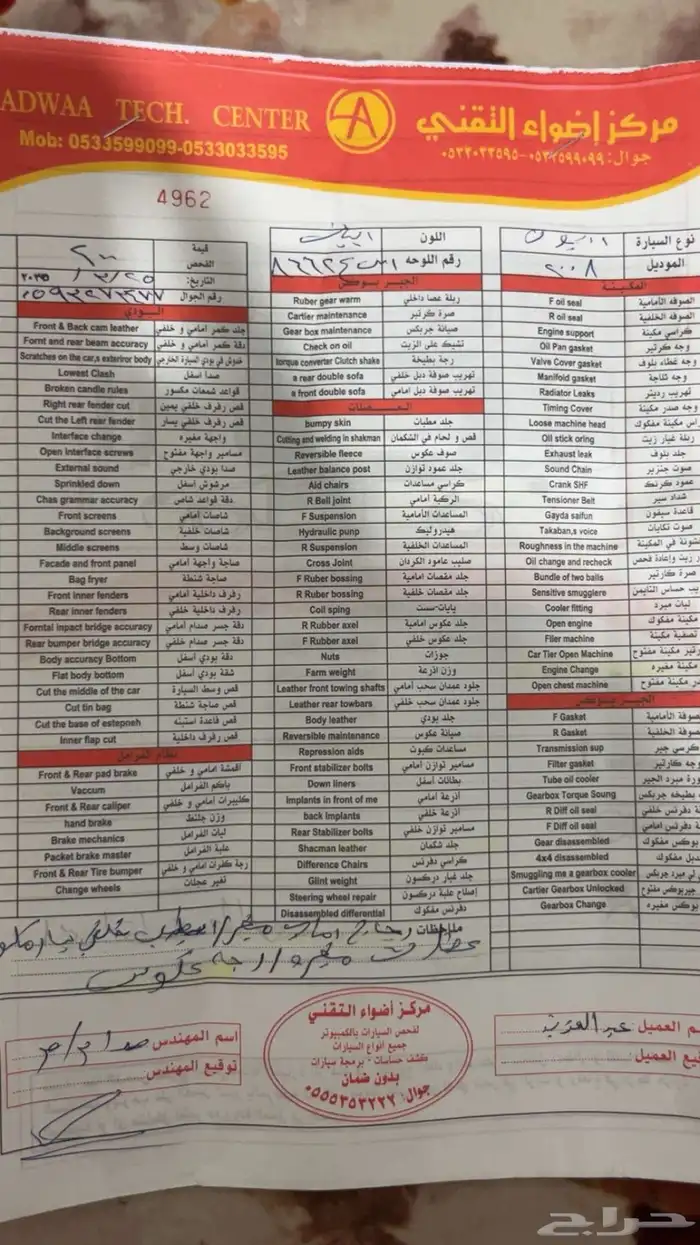 ADWAA TECH. CENTER
مركز إضواء التقني
Mob: 0533599099-0533033595
جوال: ٠٥٣٣٥٩٩٠٩٩-٠٥٣٣٠٣٣٥٩٥
4962
نوع السيارة
الموديل ٢٠٠٨
اللون ابيض
رقم اللوحه
قيمة الفحص ٢٠٠
التاريخ: ٢٥/٣/٢٠٢٥
رقم الجوال
المكينة
F oil seal الصوفة الأمامية
R oil seal الصوفة الخلفية
Engine support كراسي مكينة
Oil Pan gasket وجه كرتير
Valve Cover gasket وجه غطاء بلوف
Manifold gasket وجه ثلاجة
Radiator Leaks تهريب رديتر
Timing Cover وجه صدر مكينة
Loose machine head راس مكينة مفكوك
Oil stick oring ربلة غيار زيت
Exhaust leak جلد بلوف
Sound Chain صوت جنزير
Crank SHF عمود كرنك
Tensioner Belt شداد سير
Gayda saifun قاعدة سيفون
Takaban,s voice صوت تكايات
Roughness in the machine خشونة في المكينة
Oil change and recheck
Bundle of two balls صرة كارتير
Sensitive smugglere حساس التايمن
Cooler fitting ليات مبرد
Open engine مكينة مفكوك
Flier machine تصفية مكينة
Car Tier Open Machine مكينة مفتوح
Engine Change مكينة مغيره
Open chest machine مكينة مفتوح
الجير بوكس
F Gasket صوفة الأمامية
R Gasket صوفة الخلفية
Transmission sup كرسي جير
Filter gasket وجه كارتير
Tube oil cooler مبرد الجير
Gearbox Torque Soung بطيخه جربكس
R Diff oil seal دفرنس خلفي
F Diff oil seal دفرنس امامي
Gear disassembled بوكس مفكوك
4x4 disassembled دبل مفكوك
Smuggling me a gearbox cooler مبرد جربكس
Cartier Gearbox Unlocked جيربوكس مفتوح
Gearbox Change بوكس مغيره
الجير بوكس
Ruber gear warm ربلة عصا داخلي
Cartier maintenance صرة كرتير
Gear box maintenance صيانة جربكس
Check on oil تشيك على الزيت
torque converter Clutch shake رجة بطيخة
a rear double sofa تهريب صوفة دبل خلفي
a front double sofa تهريب صوفة دبل امامي
العضلات
bumpy skin جلد مطبات
Cutting and welding in shakman قص و لحام في الشكمان
Reversible fleece صوف عكوس
Leather balance post جلد عمود توازن
Aid chairs كراسي مساعدات
R Bell joint الركبة أمامي
F Suspension المساعدات الأمامية
Hydraulic punp هيدروليك
R Suspension المساعدات الخلفية
Cross Joint صليب عامود الكردان
F Ruber bossing جلد مقصات امامية
R Ruber bossing جلد مقصات خلفية
Coil sping يايات-سست
R Rubber axel جلد عكوس امامية
F Rubber axel جلد عكوس خلفي
Nuts جوزات
Farm weight وزن اذرعة
Leather front towing shafts جلود عمدان سحب أمامي
Leather rear towbars جلود عمدان سحب خلفي
Body leather جلد بودي
Reversible maintenance صيانة عكوس
Rapression aids مساعدات كبوت
Front stabilizer bolts مسامير توازن أمامي
Down liners بطانات أسفل
Implants in front of me أذرعة أمامي
back Implants أذرعة خلفي
Rear Stabilizer bolts مسامير توازن خلفي
Shacman leather جلد شكمان
Difference Chairs كراسي دفرنس
Glint weight جلد غيار دركسون
Steering wheel repair إصلاح علبة دركسون
Disassembled differential دفرنس مفكوك
البودي
Front & Back cam leather جلد كمر امامي و خلفي
Fornt and rear beam accuracy دقة كمر امامي و خلفي
Scratches on the car,s exteriror body خدوش في بودي السيارة الخارجي
Lowest Clash صدا اسفل
Broken candle rules قواعد شمعات مكسور
Right rear fender cut قص رفرف خلفي يمين
Cut the Left rear fender قص رفرف خلفي يسار
Interface change واجهة مغيره
Open interface screws مسامير واجهة مفتوح
External sound صدا بودي خارجي
Sprinkled down مرشوش اسفل
Chas grammar accuracy دقة قواعد شاص
Front screens شاصات أمامي
Background screens شاصات خلفية
Middle screens شاصات وسط
Facade and front panel صاجة واجهة أمامي
Bag fryer صاجة شنطة
Front inner fenders رفرف داخلية أمامي
Rear inner fenders رفرف داخلية خلفي
Forntal inpact bridge accuracy دقة جسر صدام أمامي
Rear bumper bridge accuracy دقة جسر صدام خلفي
Body accuracy Bottom دقة بودي أسفل
Flat body bottom شقة بودي أسفل
Cut the middle of the car قص وسط السيارة
Cut tin bag قص صاجة شنطة
Cut the base of estepneh قص قاعدة استبنه
Inner flap cut قص رفرف داخلية
نظام الفرامل
Front & Rear pad brake أقمشة امامي و خلفي
Vaccum باكم الفرامل
Front & Rear caliper كليبرات امامي و خلفي
hand brake وزن جلنط
Brake mechanics ليات الفرامل
Packet brake master علبة الفرامل
Front & Rear Tire bumper رجة كفرات امامي و خلفي
Change wheels تغير عجلات
ملاحظات
عكوس
اسم العميل عبدالعزيز
توقيع العميل
مركز أضواء التقني
لفحص السيارات بالكمبيوتر
جميع أنواع السيارات
كشف حساسات - برمجة سيارات
بدون ضمان
جوال: ٠٥٥٥٣٥٣٢٢٢
اسم المهندس
توقيع المهندس
حراج